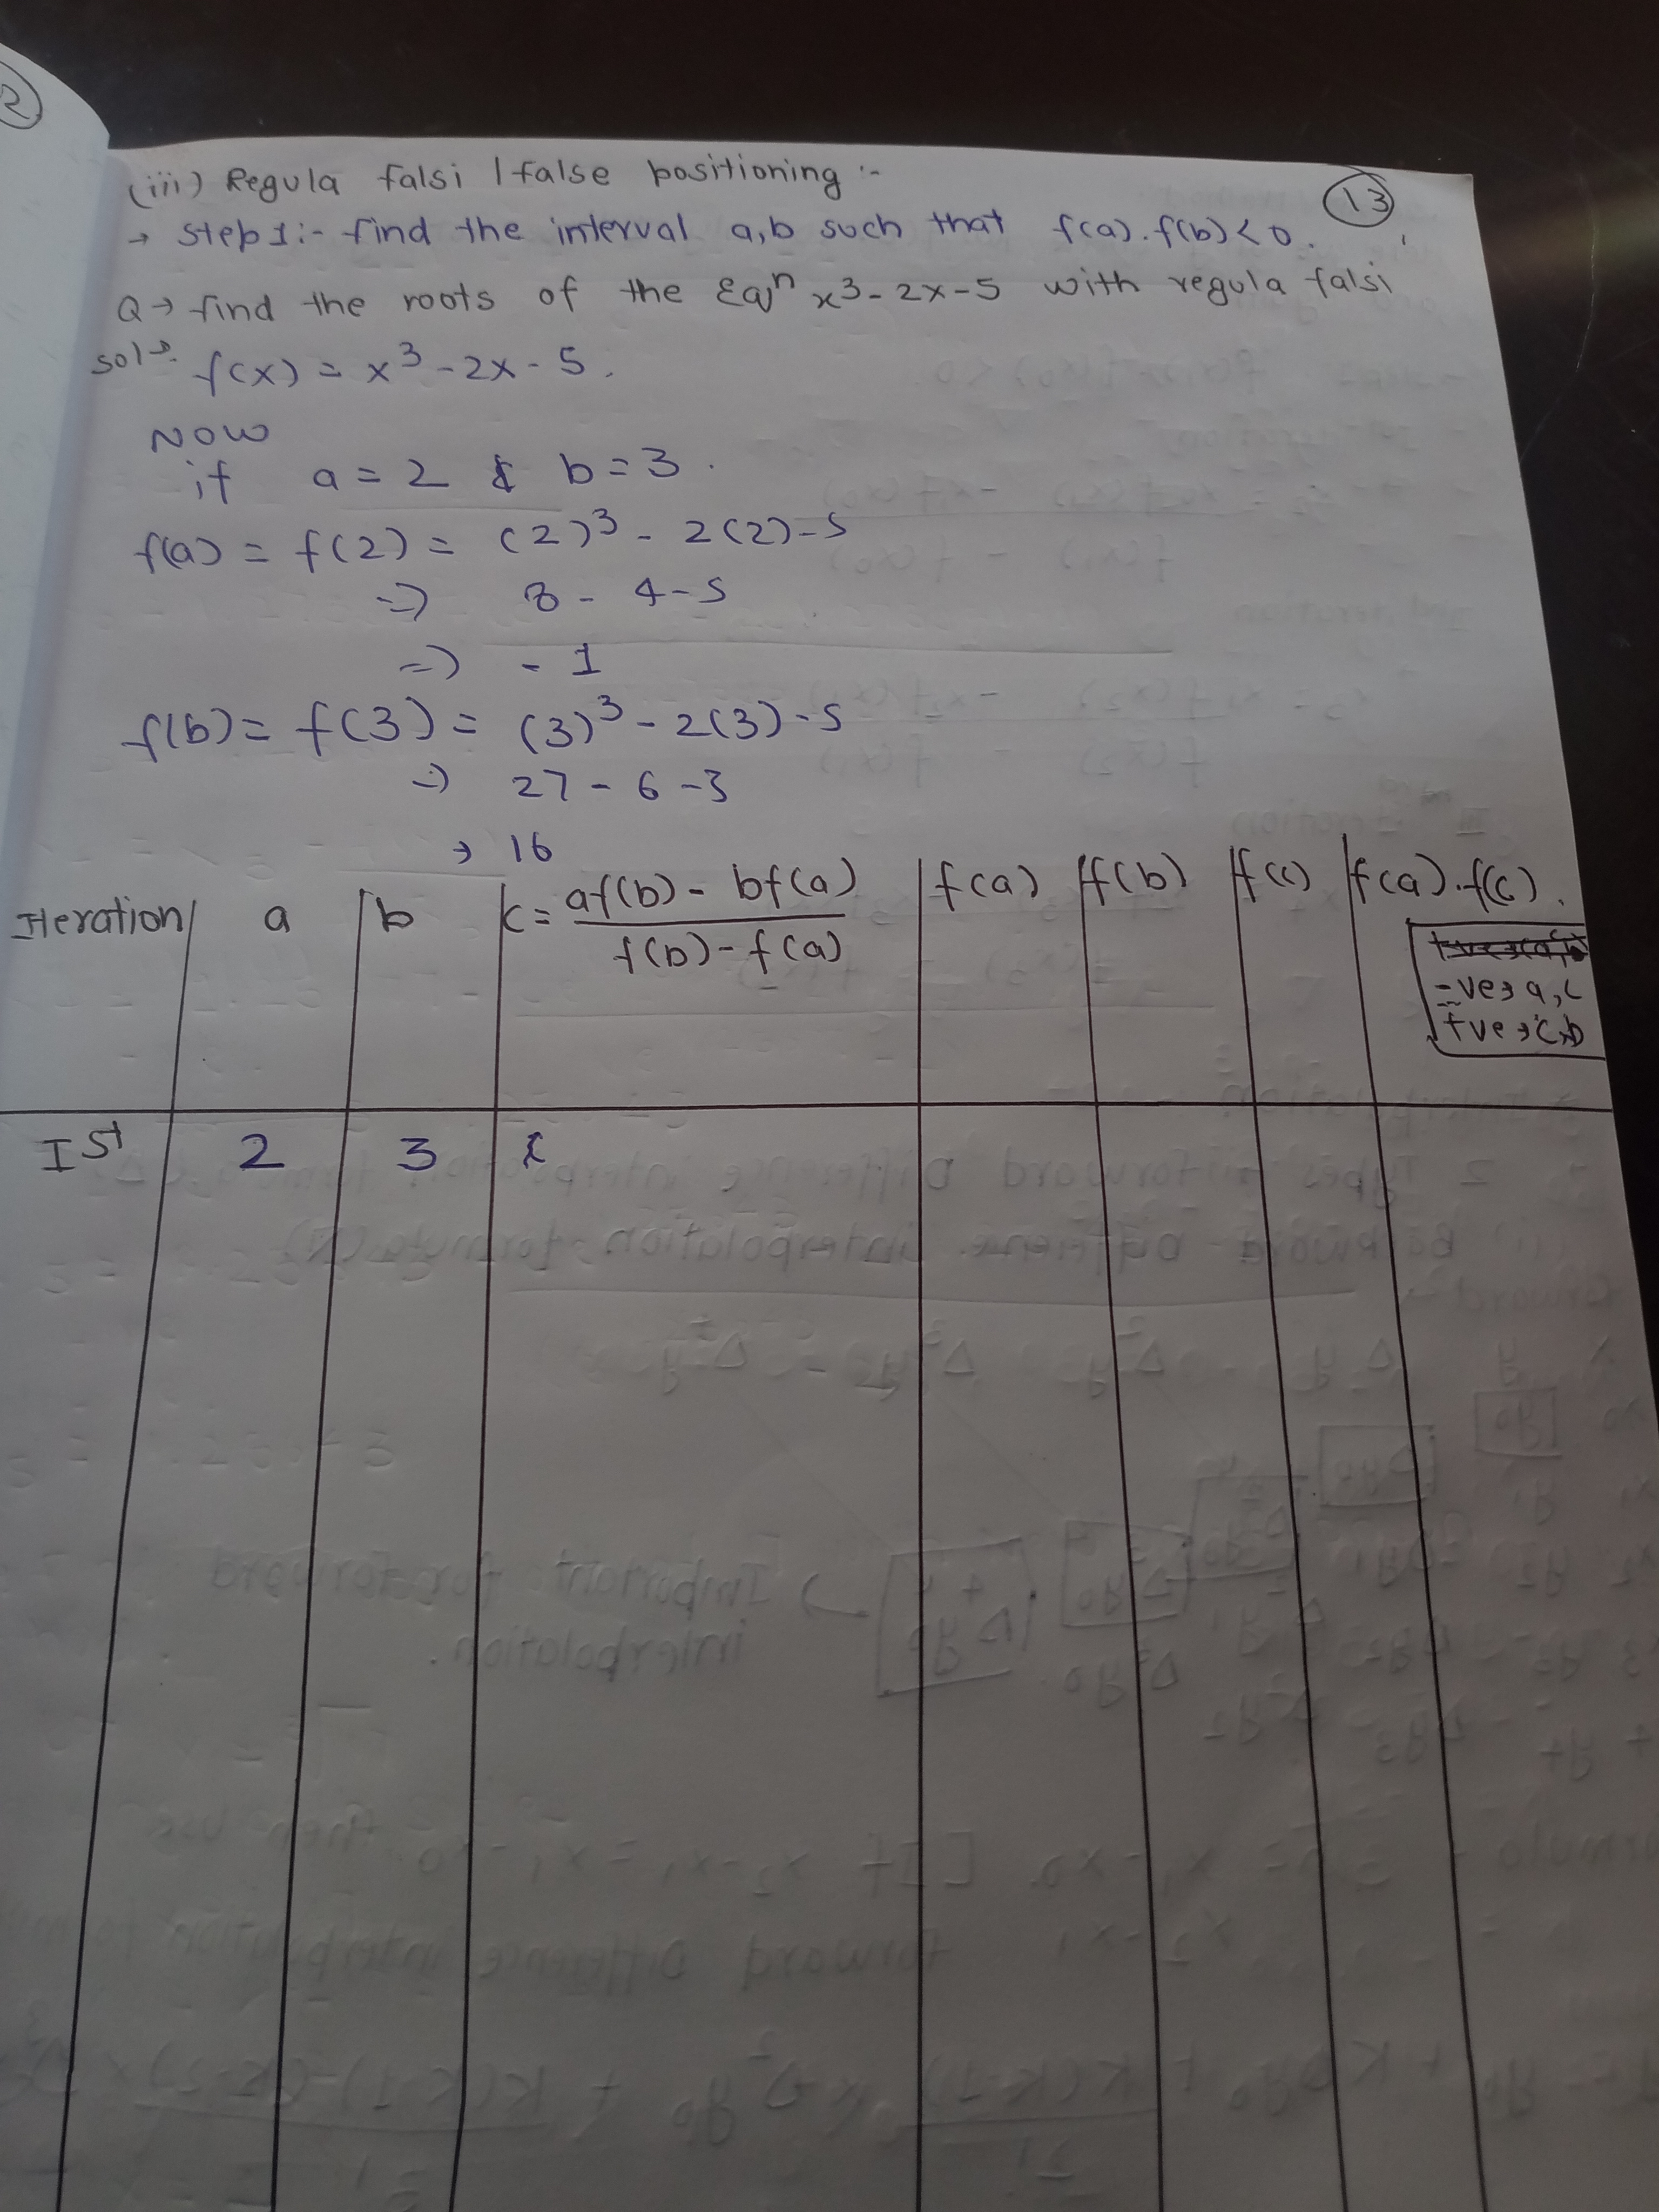 2
(iii) Regula falsi / false positioning :-
13
→ Step 1:- find the interval a,b such that f(a).f(b)<0.
Q→ find the roots of the Eqⁿ x³-2x-5 with regula falsi
solⁿ f(x) = x³-2x-5.
NOW
if a = 2 & b = 3.
f(a) = f(2) = (2)³ - 2(2)-5
=> 8 - 4-5
=> - 1
f(b) = f(3) = (3)³ - 2(3)-5
=> 27 - 6 -3
→ 16
Iteration | a | b | c = af(b) - bf(a) / f(b) - f(a) | f(a) | f(b) | f(c) | f(a).f(c).
-ve→ a,c
+ve→ c,b
Ist 2 3